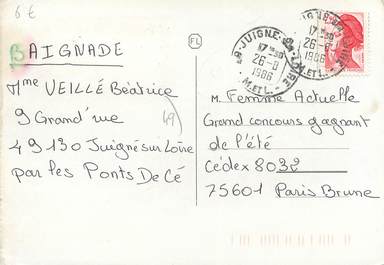 6 €
BAIGNADE
FL
Mme VEILLÉ Béatrice
9 Grand'rue
49130 Juigné sur Loire
par les Ponts De Cé
49
49-JUIGNÉ-SUR-LOIRE
17H30
26-8
1986
M.ET L.
17H30
26-8
1986
M.ET L.
M. Femme Actuelle
Grand concours gagnant
de l'été
Cédex 8032
75601 Paris Brune